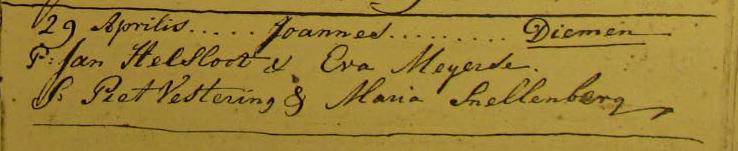 29 Aprilis..... Joannes......... Diemen
P: Jan Helsloot & Eva Meyerse.
S: Piet Vestering & Maria Snellenberg